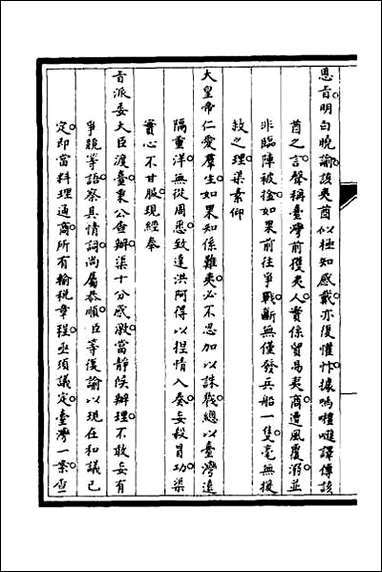 恩旨明白曉諭該夷酋以極知感戴亦復懽忭據嗎禮嗹譯傳該
酋之言聲稱臺灣前獲夷人實係貿易夷商遭風覆溺並
非臨陣被擒如果前往爭戰斷無僅發兵船一隻毫無援
救之理渠素仰
大皇帝仁愛羣生如果知係難夷必不忍加以誅戮總以臺灣遠
隔重洋無從周悉致達洪阿得以捏情入奏妄殺冒功渠
實心不甘服現經奉
旨派委大臣渡臺秉公查辦渠十分感激當靜候辦理不敢妄有
爭競等語察其情詞尚屬恭順臣等復諭以現在和議已
定即當料理通商所有輸稅章程亟須議定臺灣一案查